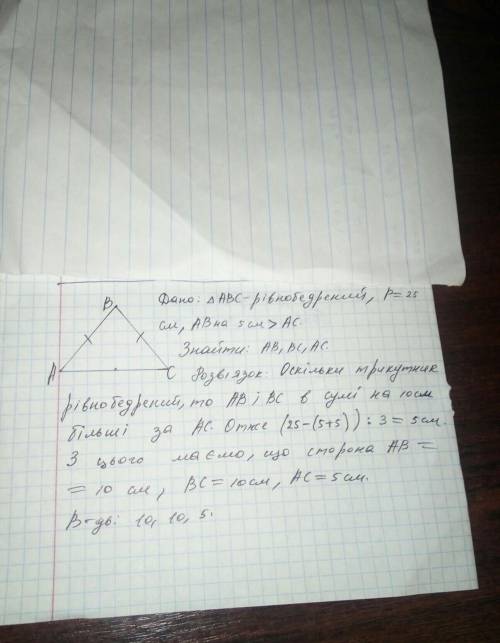 B
Дано: △ABC-рівнобедрений, P=25
см, AB на 5см > AC.
Знайти: AB, BC, AC.
A
C
Розв'язок: Оскільки трикутник
рівнобедрений, то AB і BC в сумі на 10см
більші за AC. Отже (25-(5+5)):3=5см.
З цього маємо, що сторона AB =
= 10 см, BC=10см, AC=5см.
В-дь: 10, 10, 5.